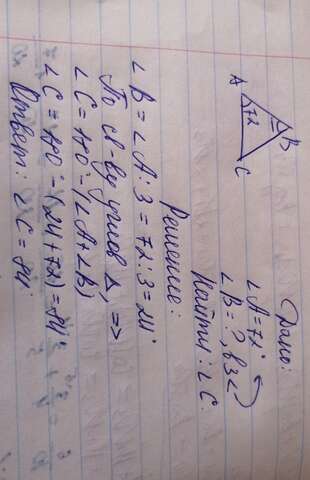 Дано:
A
72
B
C
∠A = 72°
∠B = ?, в 3 <
Найти: ∠C.
Решение:
∠B = ∠A : 3 = 72 : 3 = 24°
По св-ву углов Δ, =>
∠C = 180° - (∠A + ∠B)
∠C = 180° - (24 + 72) = 84°
Ответ: ∠C = 84°.